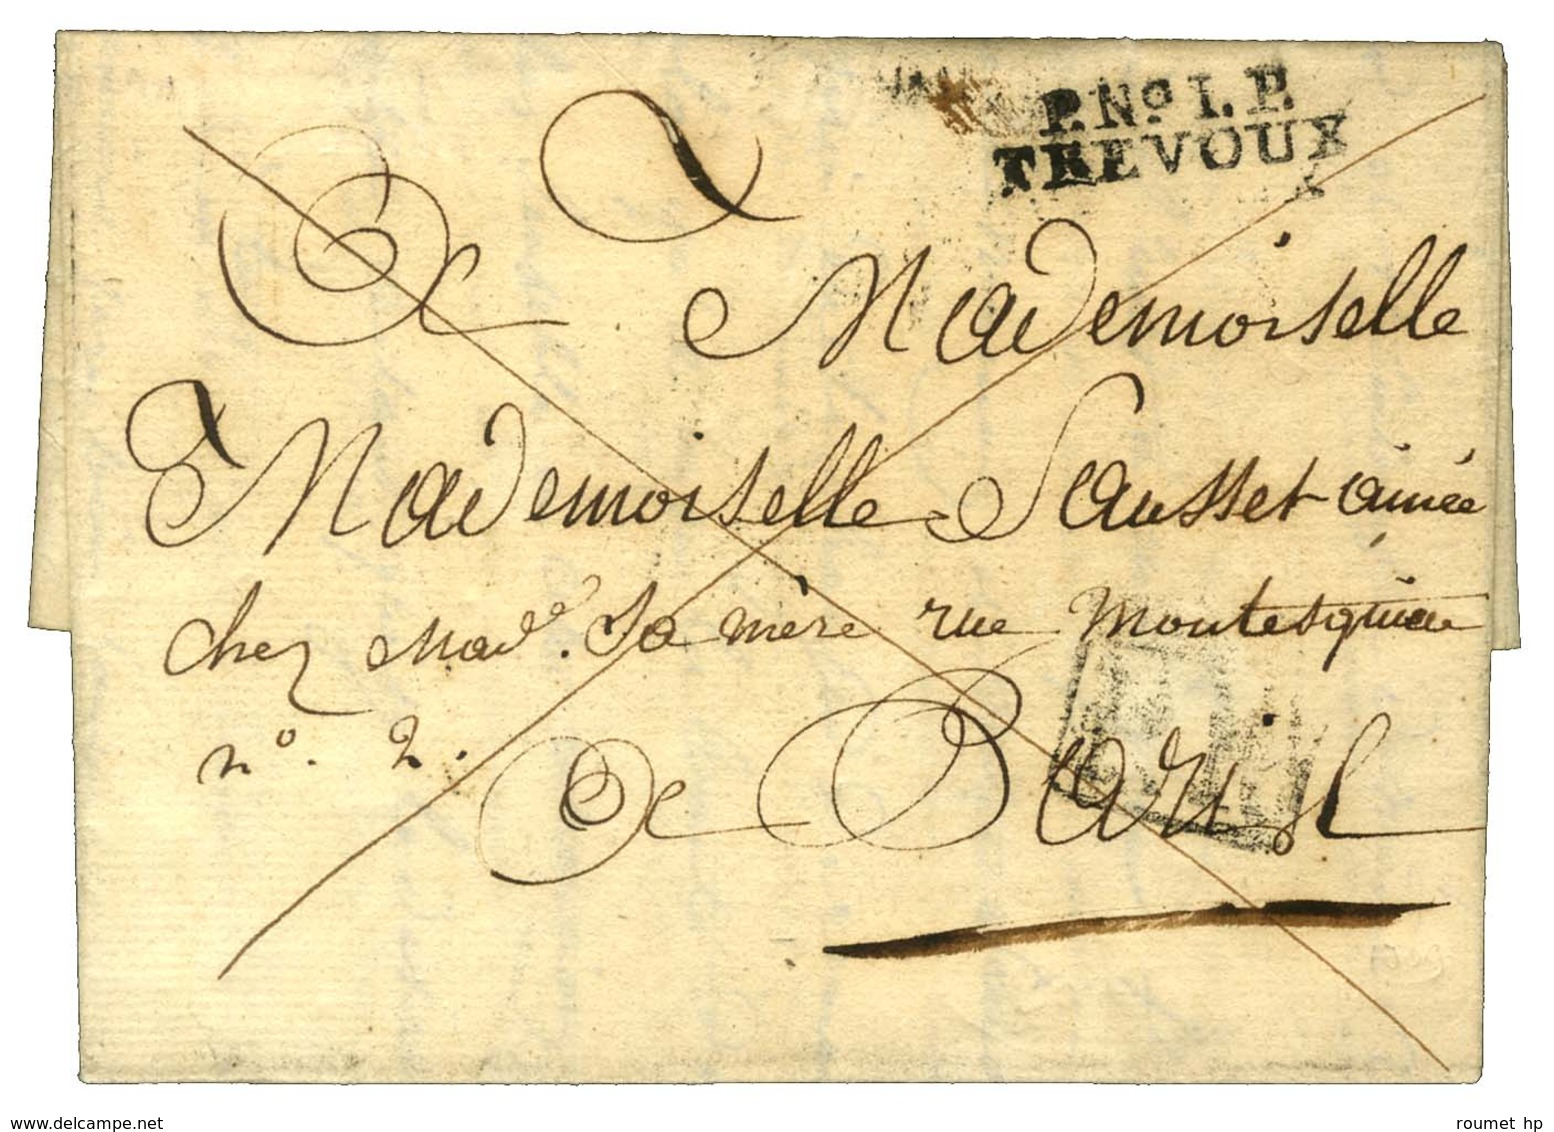 P.Nº I.P.
TREVOUX
A Mademoiselle
Mademoiselle Sausset ainée
chez Made. Sa mère rue Montesquieu
nº. 2.
A Paris
www.delcampe.net
roumet hp